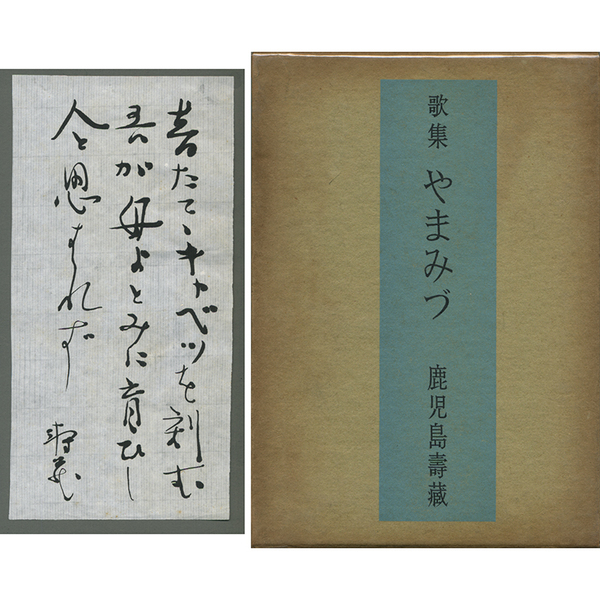 音たてゝキャベツを刻む
吾が母よとみに盲ひし
人と思はれず
壽蔵
歌集 やまみづ 鹿児島壽藏